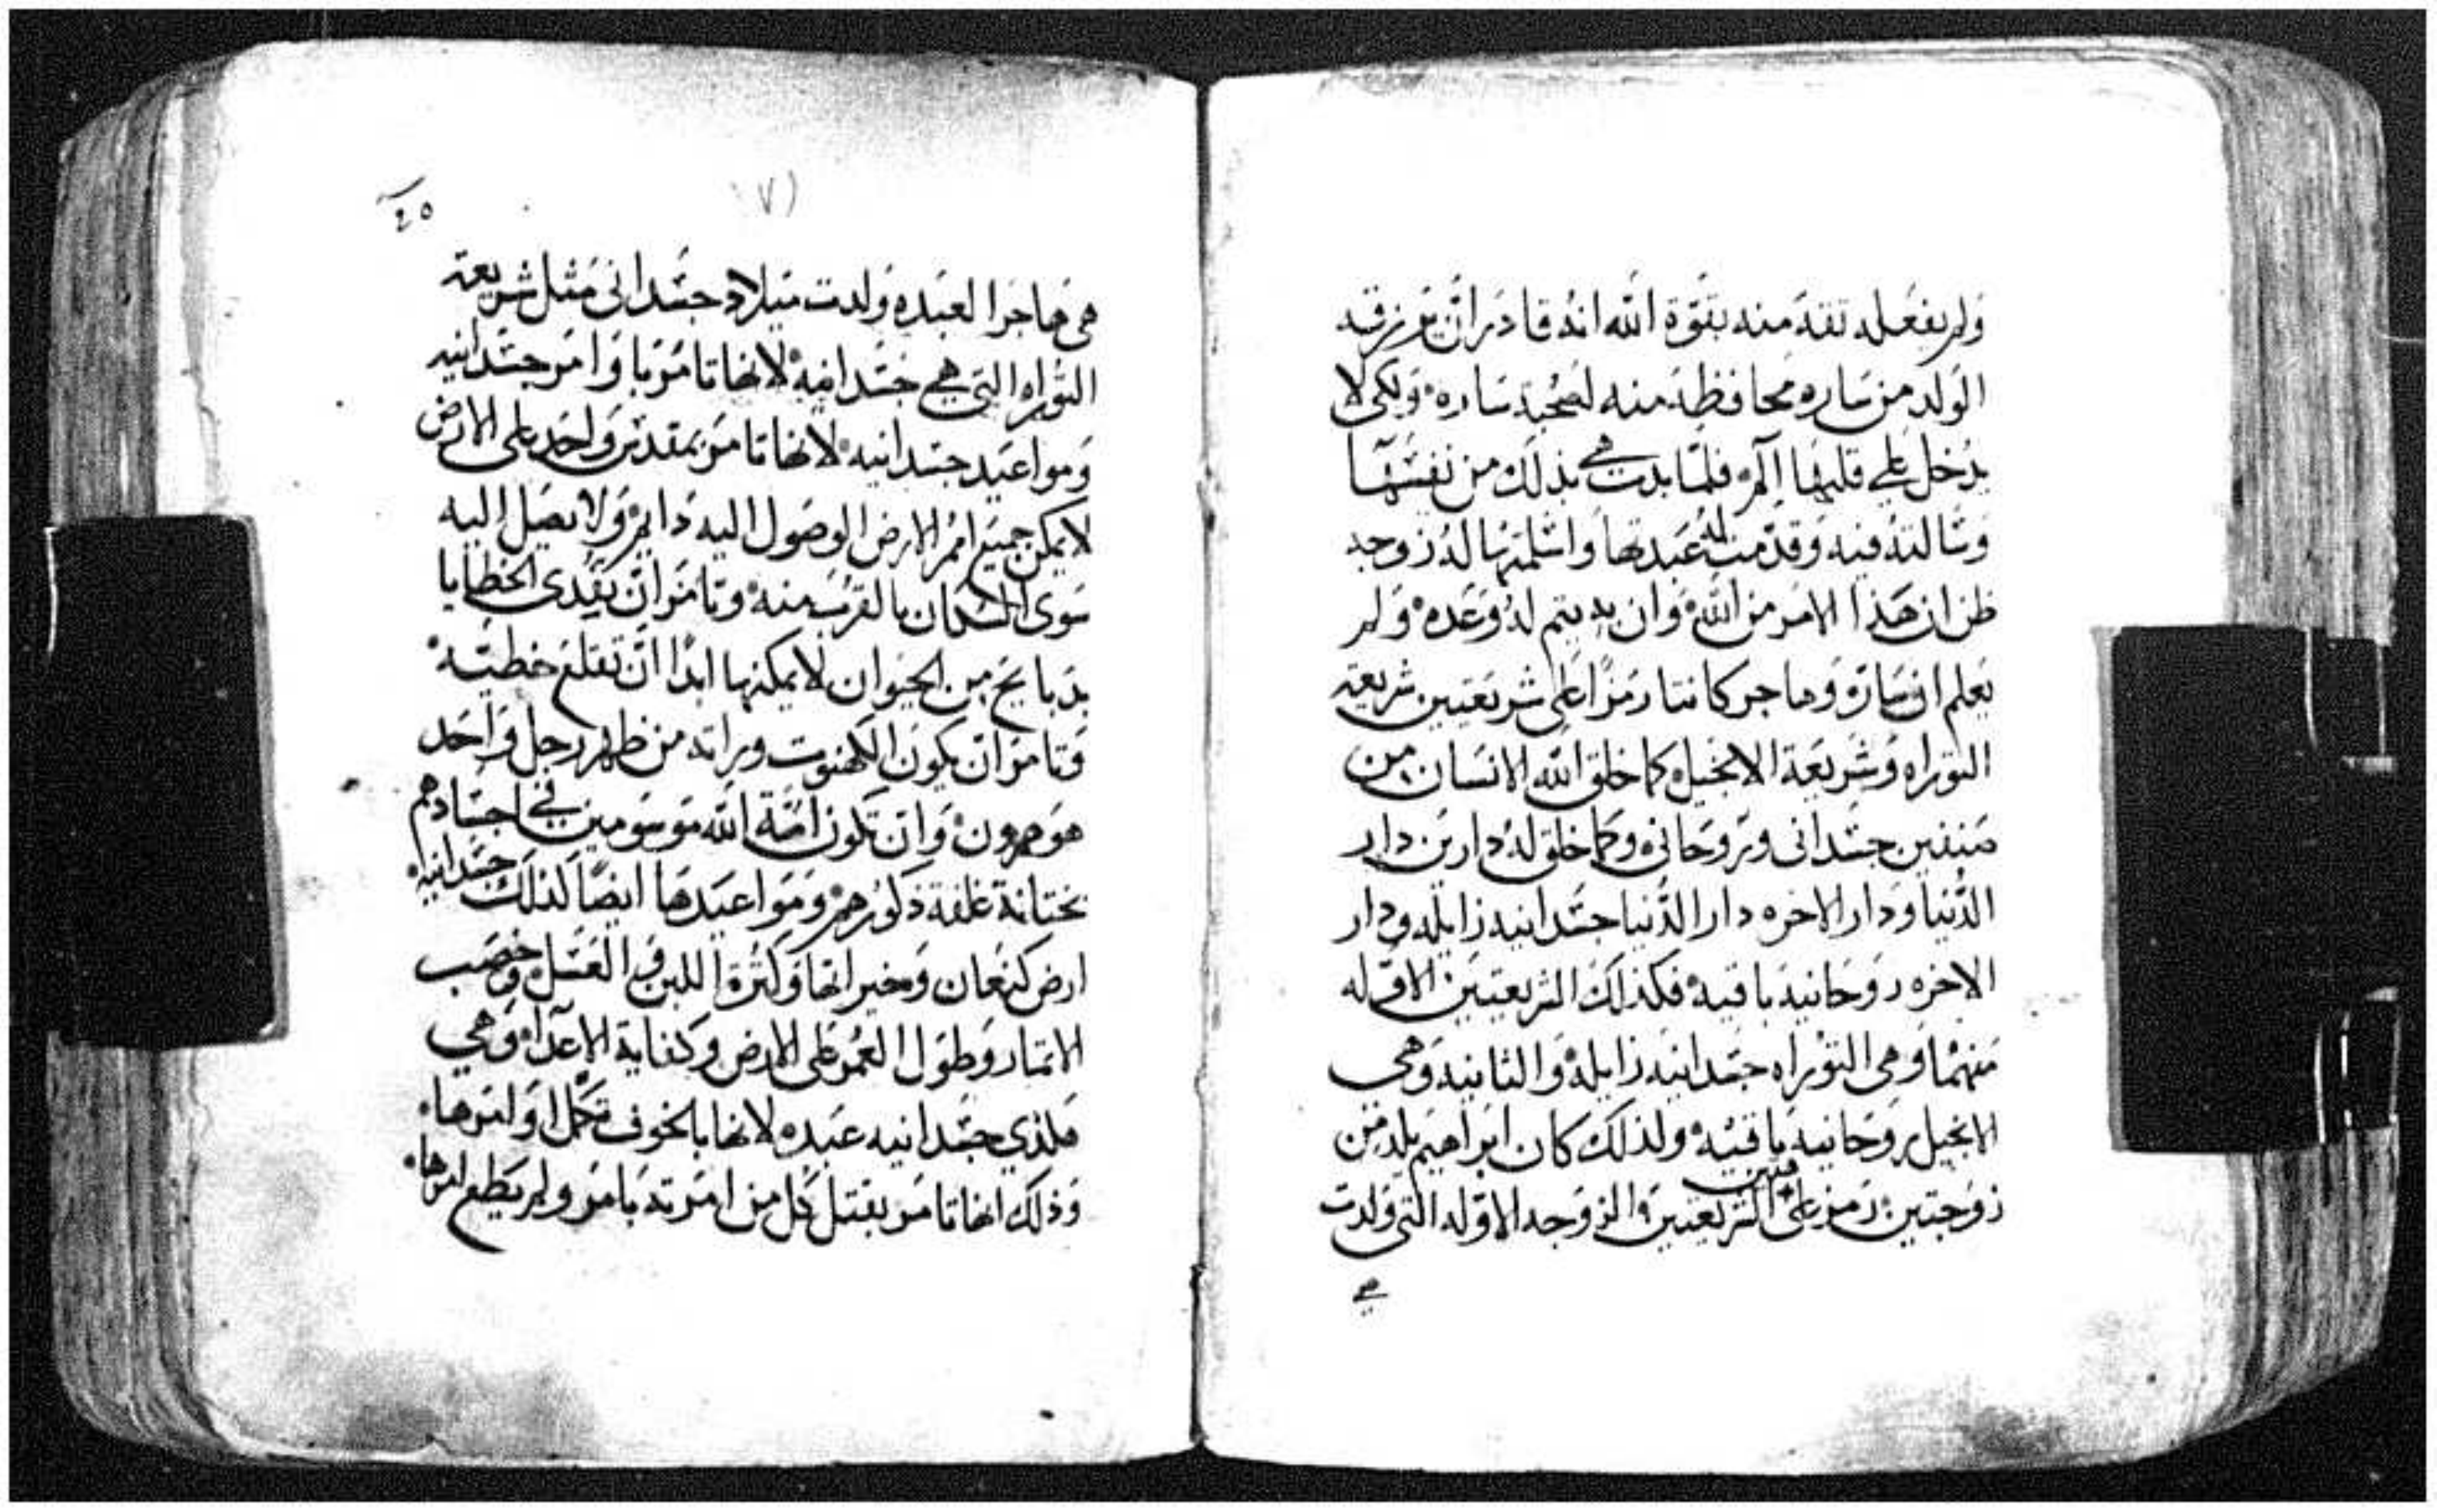 ولم يفعله تقه منه بقوة الله انه قادر ان يرزقه
الولد من ساره محافظه منه لصحبة ساره ولكى لا
يدخل على قلبها الم فلما بدت هى بذلك من نفسها
وسالته فيه وقدمت له عبدتها واسلمتها له زوجه
ظن ان هذا الامر من الله وان به يتم له وعده ولم
يعلم ان ساره وهاجر كانتا رمزا على شريعتين شريعة
التوراه وشريعة الانجيل كما خلق الله الانسان من
صنفين جسدانى وروحانى وكما خلق له دارين دار
الدنيا ودار الاخره دار الدنيا جسدانيه زايله ودار
الاخره روحانيه باقيه فكذلك الشريعتين الاوله
منهما وهى التوراه جسدانيه زايله والثانيه وهى
الانجيل روحانيه باقيه ولذلك كان ابراهيم يلد من
زوجتين رمز على الشريعتين والزوجه الاوله التى ولدت
هى
٤٥
(٧١
هى هاجر العبده ولدت ميلاد جسدانى مثل شريعة
التوراه التى هى جسدانيه لانها تامر باوامر جسدانيه
ومواعيد جسدانيه لانها تامر بمقدس واحد على الارض
لا يمكن جميع امم الارض الوصول اليه دايم ولا يصل اليه
سوى السكان بالقرب منه وتامر ان تفدى الخطايا
بدبايح من الحيوان لا يمكنها ابدا ان تقلع خطيه
وتامر ان يكون الكهنوت وراثه من ظهر رجل واحد
هو هرون وان تكون امة الله موسومين في اجسادهم
بختانة غلفة ذكورهم ومواعيدها ايضا كذلك جسدانيه
ارض كنعان وخيراتها وكثرة اللبن والعسل وخصب
الاتمار وطول العمر على الارض وكفاية الاعداء وهى
فلذى جسدانيه عبده لانها بالخوف تكمل اوامرها
وذلك انها تامر بقتل كل من امرته بامر ولم يطع امرها